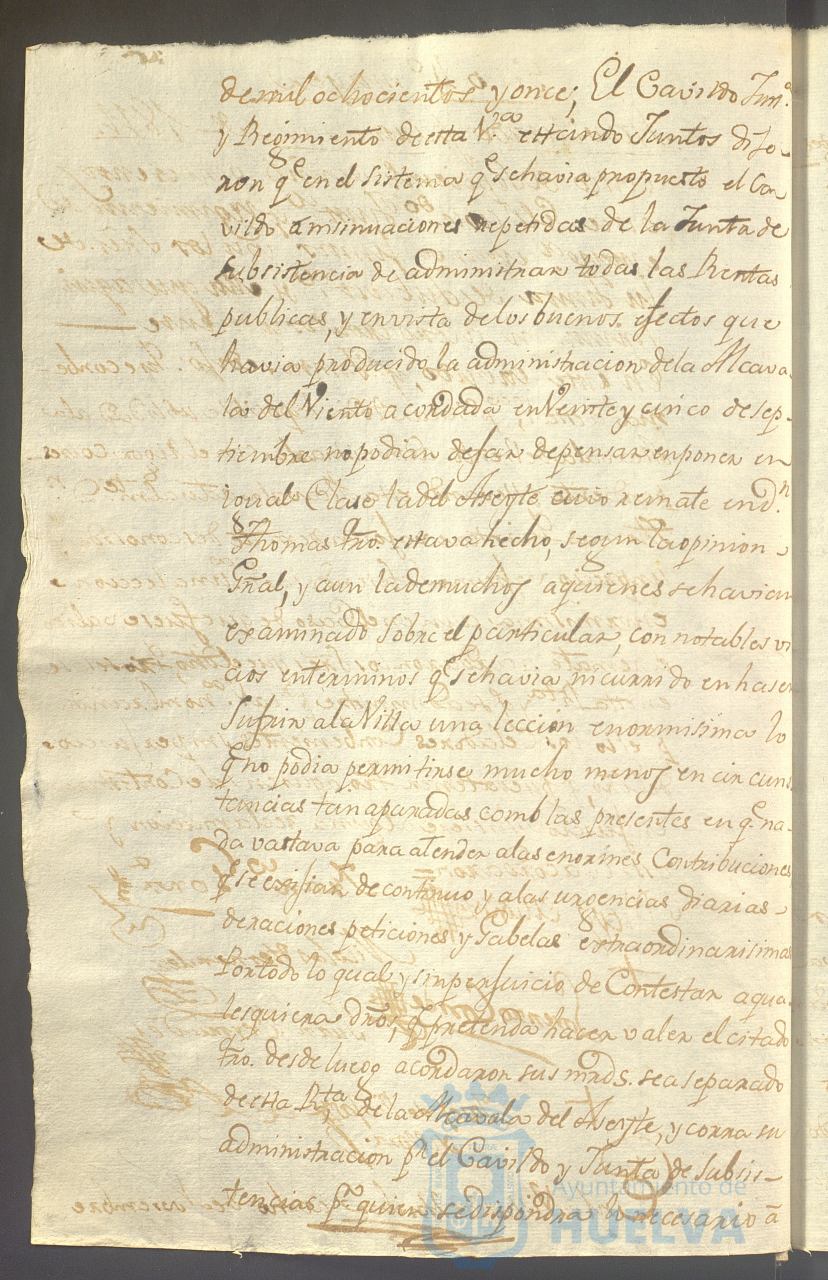 de mil ochocientos y once; El Cavildo Jus.ª
y Regimiento de esta V.ª estando Juntos dije-
ron q.e en el sistema q.e se havia propuesto el Ca
vildo á insinuaciones repetidas de la Junta de
subsistencia de administrar todas las Rentas
publicas, y en vista de los buenos efectos que
havia producido la administracion de la Alcava-
la del Viento acordada en Veinte y cinco de sep-
tiembre no podian dejar de pensar en poner en
igual Clase la del Aseyte cuio remate en D.n
Thomas Tro. estava hecho, segun la opinion
Gñal, y aun la de muchos a quienes se havian
examinado sobre el particular, con notables vi
cios en terminos q.e se havia incurrido en haser
Sufrir a la Villa una lección enormisima lo
q.e no podia permitirse mucho menos en circuns
tancias tan apuradas como las presentes en q.e na-
da vastava para atender a las enormes Contribuciones
q.e se exijian de continuo, y a las urgencias diarias
de raciones peticiones y Gabelas extraordinarisimas
Por todo lo qual y sin perjuicio de Contestar a qua-
lesquiera dro, q.e pretenda hacer valer el citado
Tro. desde luego acordaron sus mrds. sea separado
de esta R.ta de la Alcavala del Aseyte, y corra su
administracion p.r el Cavildo y Junta de Subsis-
tencias p.r quien se dispondra lo necesario á
Ayuntamiento de
HUELVA